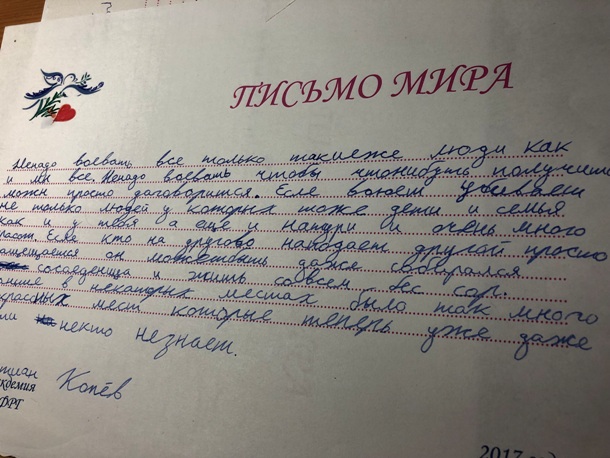 ПИСЬМО МИРА
Ненадо воевать все только такиеже люди как
и мы все. Ненадо воевать чтобы чтонибудь получить
можн просто даговорится. Если воюем убиваем
не только людей у которых тоже дети и семья
как и у тебя а еще и и очень много
Если кто на другово нападает другой просто
он даже собирался
и жить совсем бес сор.
в некоторых местах было так много
красных мест которые теперь уже даже
некто незнает.
Копев
ФРГ
2017